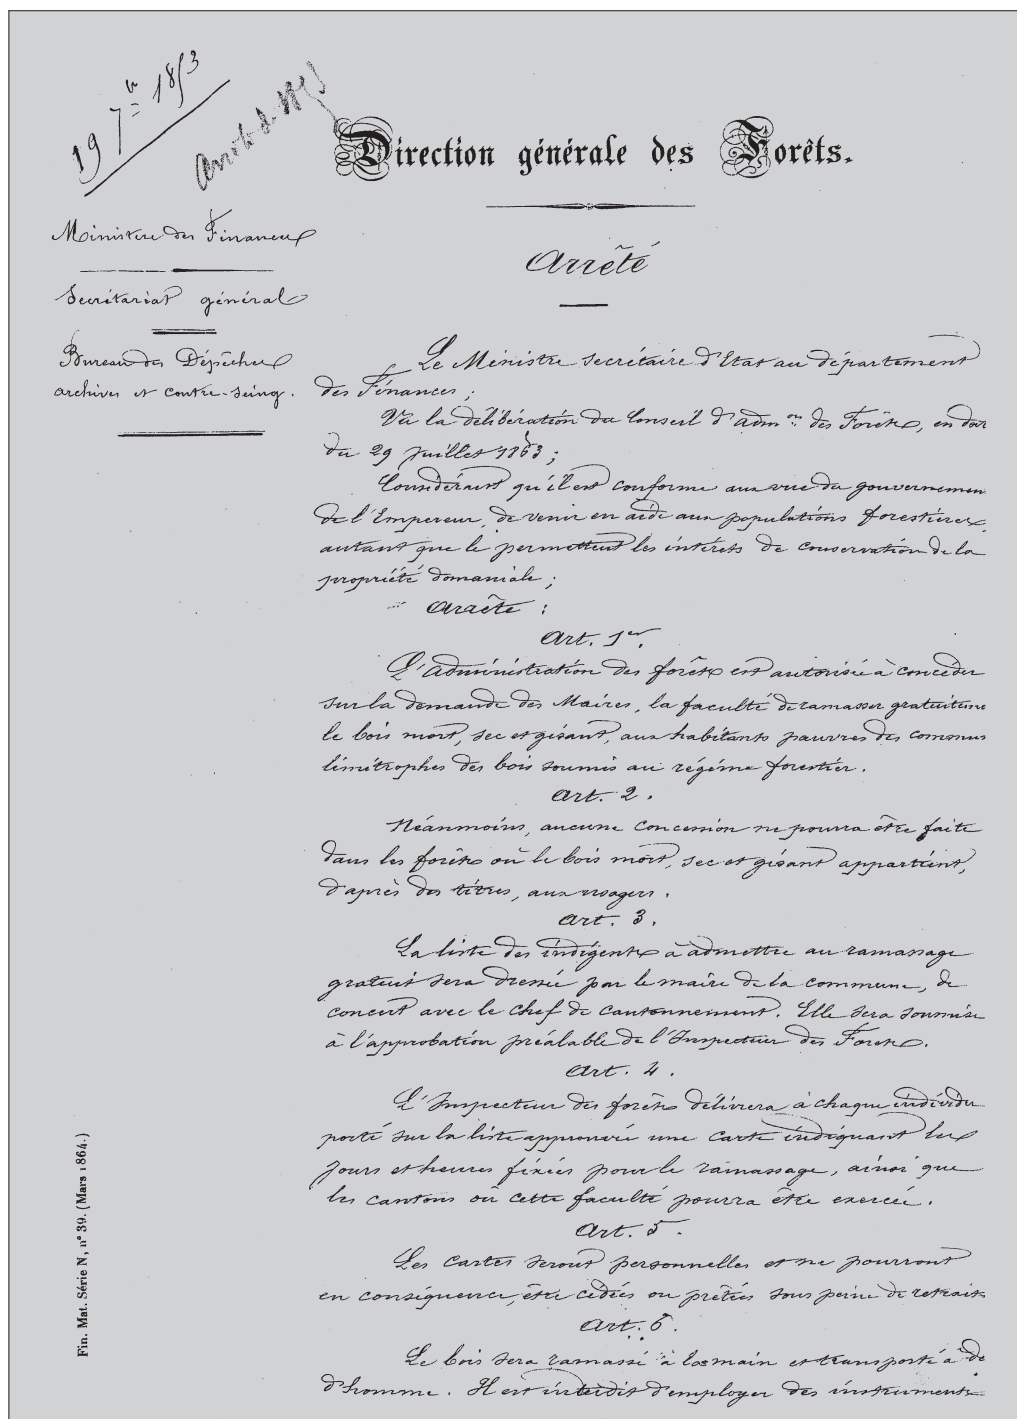 19 7bre 1853
Direction générale des Forêts.
Ministère des Finances
Secrétariat général
Bureau des Dépêches
archives et contre-seing.
Arrêté
Le Ministre secrétaire d'Etat au département
des Finances ;
Vu la délibération du Conseil d'admon des Forêts, en dat
du 29 juillet 1853 ;
Considérant qu'il est conforme aux vues du gouvernemen
de l'Empereur, de venir en aide aux populations forestières,
autant que le permettent les intérêts de conservation de la
propriété domaniale ;
Arrête :
Art. 1er.
L'administration des forêts est autorisée à concéder
sur la demande des Maires, la faculté de ramasser gratuiteme
le bois mort, sec et gisant, aux habitants pauvres des communes
limitrophes des bois soumis au régime forestier.
Art. 2.
Néanmoins, aucune concession ne pourra être faite
dans les forêts où le bois mort, sec et gisant appartient,
d'après des titres, aux usagers.
Art. 3.
La liste des indigents à admettre au ramassage
gratuit sera dressée par le maire de la commune, de
concert avec le chef de cantonnement. Elle sera soumise
à l'approbation préalable de l'Inspecteur des Forets.
Art. 4.
L'Inspecteur des forêts délivrera à chaque individu
porté sur la liste approuvée une carte indiquant les
jours et heures fixées pour le ramassage, ainsi que
les cantons où cette faculté pourra être exercée.
Art. 5.
Les cartes seront personnelles et ne pourront
en conséquence, être cédées ou prêtées sous peine de retrait
Art. 6.
Le bois sera ramassé à la main et transporté à dos
d'homme. Il est interdit d'employer des instruments
Fin. Mat. Série N, n° 39. (Mars 1864.)